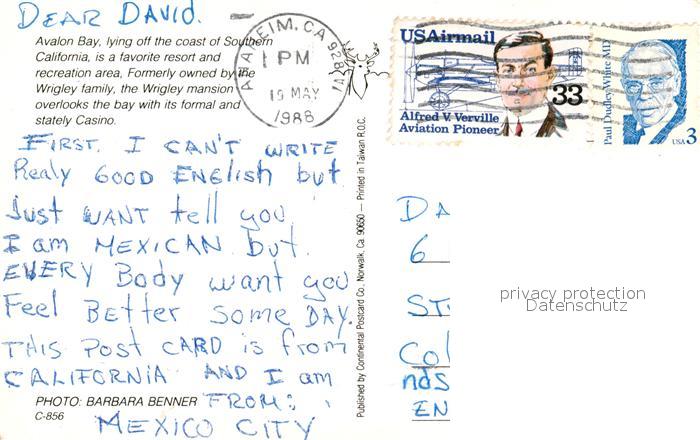 DEAR DAVID.
Avalon Bay, lying off the coast of Southern
California, is a favorite resort and
recreation area, Formerly owned by the
Wrigley family, the Wrigley mansion
overlooks the bay with its formal and
stately Casino.
FIRST. I CAN'T WRITE
Realy GOOD ENGlish but
Just WANT tell you.
I am MEXICAN but.
EVERY Body want you
Feel BETTER SOME DAY.
THIS POST CARD is from
CALIFORNIA AND I am
PHOTO: BARBARA BENNER
FROM:
C-856
MEXICO CITY
ANAHEIM, CA
1 PM
19 MAY
1988
Published by Continental Postcard Co. Norwalk, Ca. 90650 — Printed in Taiwan R.O.C.
USAirmail
33
Alfred V. Verville
Aviation Pioneer
Paul Dudley White MD
USA 3
DA
6
ST
Col
nds
EN
privacy protection
Datenschutz